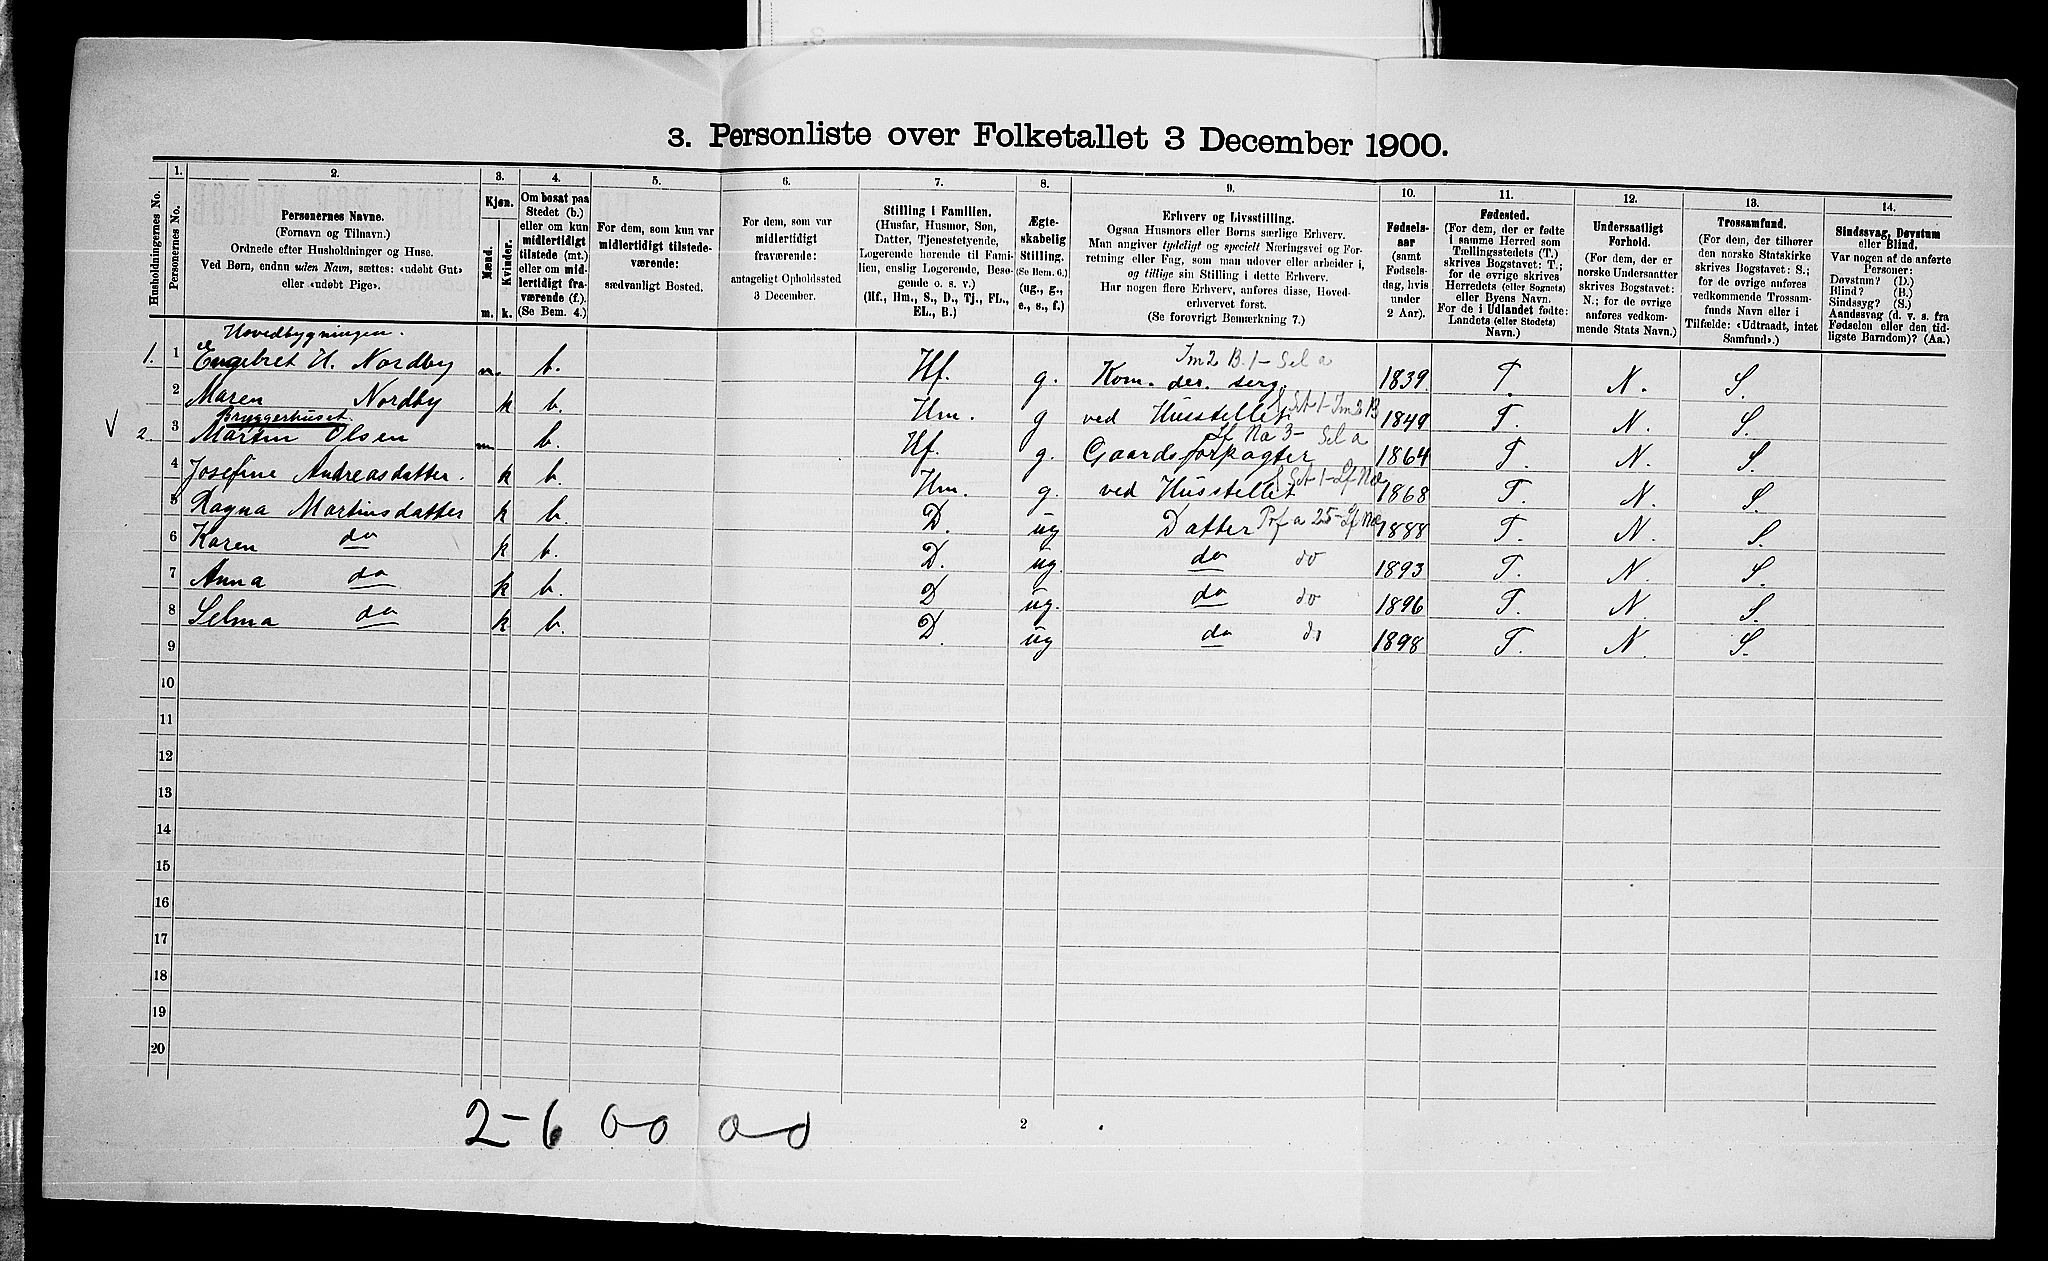 3. Personliste over Folketallet 3 December 1900.
Husholdningernes No.
1.
Personernes No.
2.
Personernes Navne.
(Fornavn og Tilnavn.)
Ordnede efter Husholdninger og Huse.
Ved Børn, endnu uden Navn, sættes: «udøbt Gut»
eller «udøbt Pige».
3.
Kjøn.
Mænd.
Kvinder.
m.
k.
4.
Om bosat paa
Stedet (b.)
eller om kun
midlertidigt
tilstede (mt.)
eller om mid-
lertidigt fra-
værende (f.).
(Se Bem. 4.)
5.
For dem, som kun var
midlertidigt tilstede-
værende:
sædvanligt Bosted.
6.
For dem, som var
midlertidigt
fraværende:
antageligt Opholdssted
3 December.
7.
Stilling i Familien.
(Husfar, Husmor, Søn,
Datter, Tjenestetyende,
Logerende hørende til Fami-
lien, enslig Logerende, Besø-
gende o. s. v.)
(Hf., Hm., S., D., Tj., FL.,
EL., B.)
8.
Ægte-
skabelig
Stilling.
(Se Bem. 6.)
(ug., g.,
e., s., f.)
9.
Erhverv og Livsstilling.
Ogsaa Husmors eller Børns særlige Erhverv.
Man angiver tydeligt og specielt Næringsvei og For-
retning eller Fag, som man udøver eller arbeider i,
og tillige sin Stilling i dette Erhverv.
Har nogen flere Erhverv, anføres disse, Hoved-
erhvervet først.
(Se forøvrigt Bemærkning 7.)
10.
Fødsels-
aar
(samt
Fødsels-
dag, hvis
under
2 Aar).
11.
Fødested.
(For dem, der er fødte
i samme Herred som
Tællingsstedets (T.)
skrives Bogstavet: T.;
for de øvrige skrives
Herredets (eller Sognets)
eller Byens Navn.
For de i Udlandet fødte:
Landets (eller Stedets)
Navn.)
12.
Undersaatligt
Forhold.
(For dem, der er
norske Undersaatter
skrives Bogstavet:
N.; for de øvrige
anføres vedkom-
mende Stats Navn.)
13.
Trossamfund.
(For dem, der tilhører
den norske Statskirke
skrives Bogstavet: S.;
for de øvrige anføres
vedkommende Trossam-
funds Navn eller i
Tilfælde: «Udtraadt, intet
Samfund».)
14.
Sindssvag, Døvstum
eller Blind.
Var nogen af de anførte
Personer:
Døvstum? (D.)
Blind? (B.)
Sindssyg? (S.)
Aandssvag (d. v. s. fra
Fødselen eller den tid-
ligste Barndom)? (Aa.)
Hovedbygningen.
1. 1 Engebret H. Nordby m. b. Hf. g. Kom. der. serg. Im2 B.1- Sel a 1839. T. N. S.
2 Maren Nordby k b. Hm. g ved Husstellet 1849 T. N. S.
Bryggerhuset.
2. 3 Martin Olsen m b. Hf. g. Gaardsforpagter Lf Na 3- Sel a 1864 T. N. S.
4 Josefine Andreasdatter. k b. Hm. g. ved Husstellet 1868 T. N. S.
5 Ragna Martinsdatter k b. D. ug Datter 1888 T. N. S.
6 Karen do k b. D. ug. do do 1893 T. N. S.
7 Anna do k b. D ug. do do 1896 T. N S.
8 Selma do k b. D. ug do do 1898 T. N. S.
9
10
11
12
13
14
15
16
17
18
19
20
2-6 0-0 0-0
2